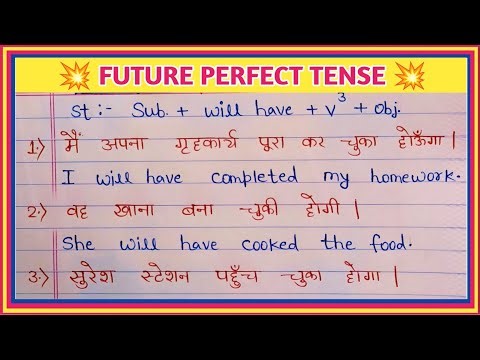 💥 FUTURE PERFECT TENSE 💥
St :- Sub. + will have + v³ + obj.
1.) मैं अपना गृहकार्य पूरा कर चुका होऊँगा |
I will have completed my homework.
2.) वह खाना बना चुकी होगी |
She will have cooked the food.
3.) सुरेश स्टेशन पहुँच चुका होगा |